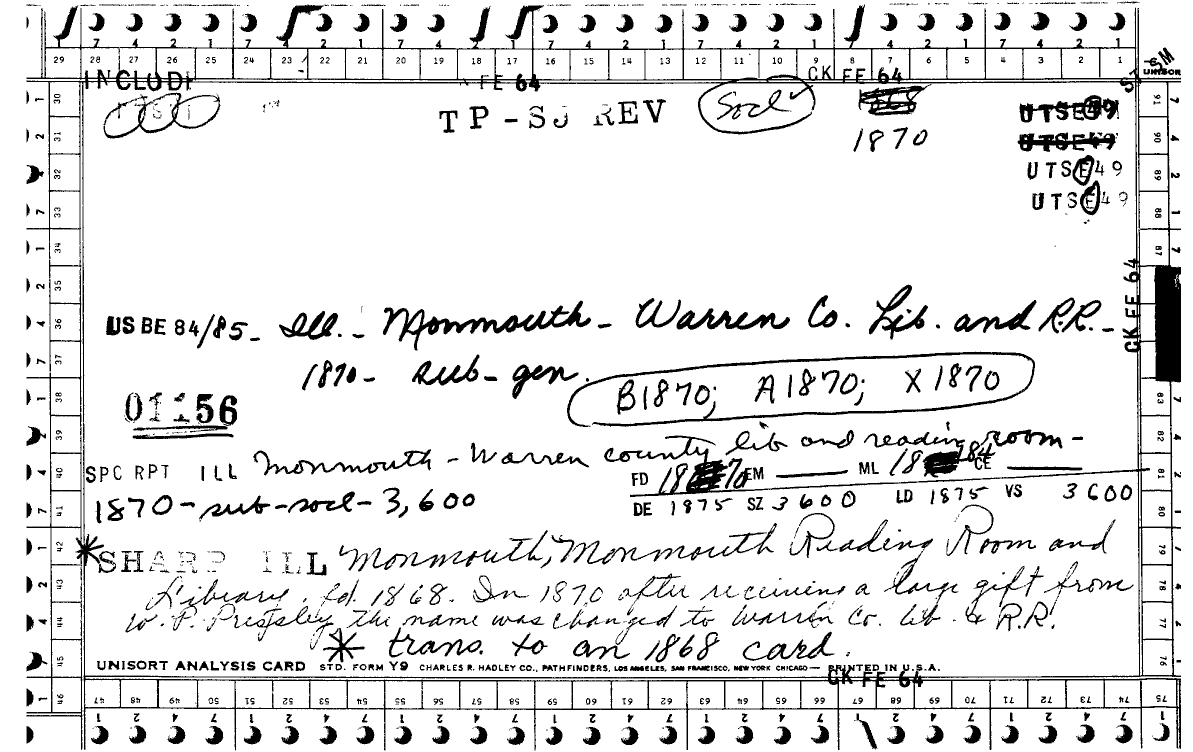 7 4 2 1 7 4 2 1 7 4 2 1 7 4 2 1 7 4 2 1 7 4 2 1 7 4 2 1
29 28 27 26 25 24 23 22 21 20 19 18 17 16 15 14 13 12 11 10 9 8 7 6 5 4 3 2 1
INCLUDI FE 64 CK FE 64 UNISOR
TP-SJ REV Socl
1870
UTSE49
UTSE49
UTSE49
UTSE49
CK FE 64
USBE 84/85- Ill. - Monmouth - Warren Co. Lib. and R.R. -
1870 - sub-gen.
B1870; A1870; X1870
01156
SPC RPT ILL Monmouth - Warren county lib and reading room -
FD 1870 EM —— ML 18 84 CE ——
1870-sub-socl-3,600
DE 1875 SZ 3600 LD 1875 VS 3600
*SHARP ILL Monmouth, Monmouth Reading Room and
Library. fd. 1868. In 1870 after receiving a large gift from
W. P. Pressley the name was changed to Warren Co. lib. & R.R.
* trans. to an 1868 card.
UNISORT ANALYSIS CARD STD. FORM Y9 CHARLES R. HADLEY CO., PATHFINDERS, LOS ANGELES, SAN FRANCISCO, NEW YORK CHICAGO— PRINTED IN U.S.A.
CK FE 64
30 31 32 33 34 35 36 37 38 39 40 41 42 43 44 45 46
91 90 89 88 87 83 82 81 80 79 78 77 76 75
47 48 49 50 51 52 53 54 55 56 57 58 59 60 61 62 63 64 65 66 67 68 69 70 71 72 73 74